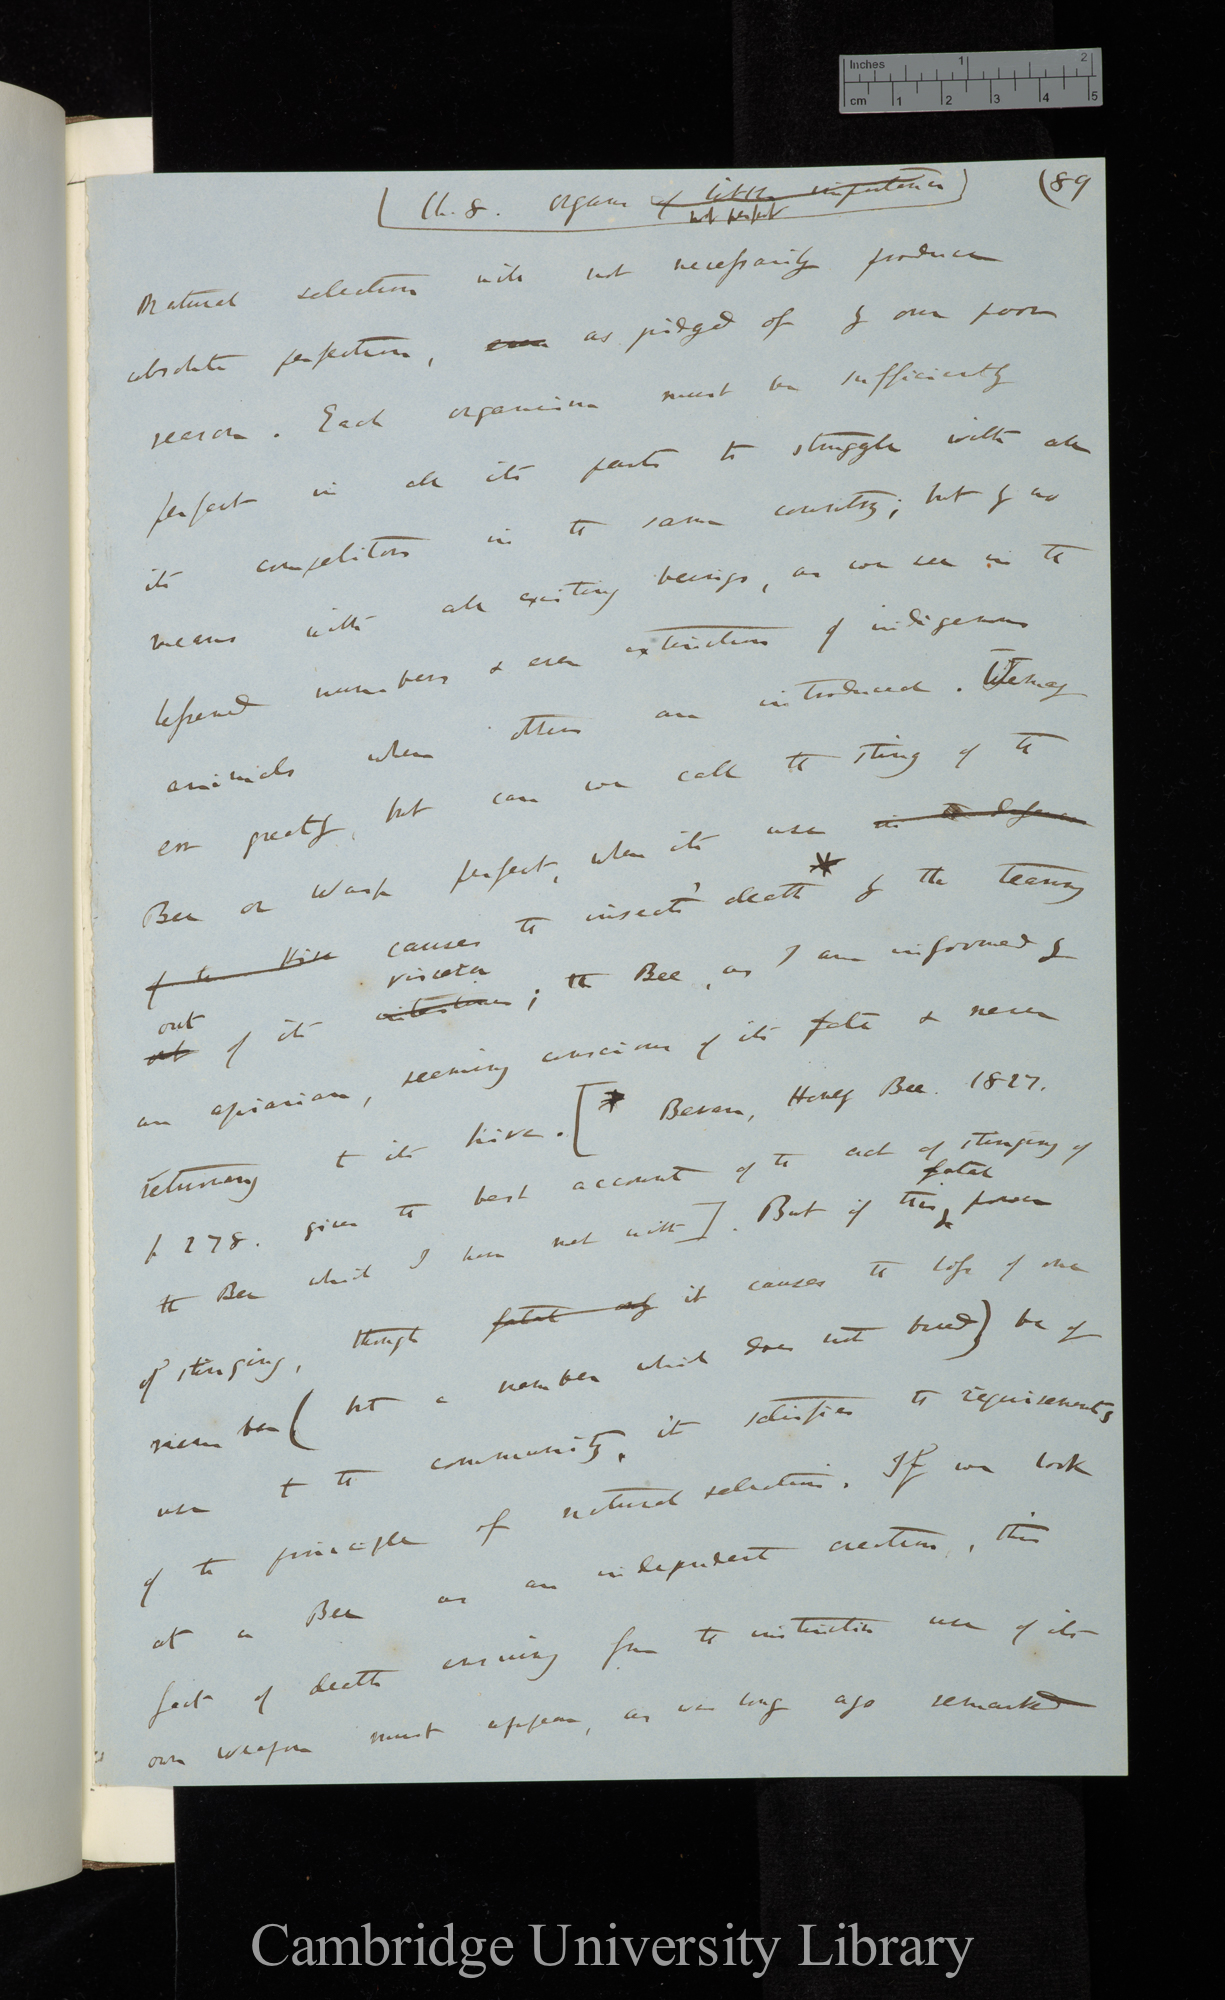 Inches 1 2
cm 1 2 3 4 5
(89
Ch. 8. Organs of little importance
not perfect
Natural selection will not necessarily produce
absolute perfection, even as judged of by our poor
reason. Each organism must be sufficiently
perfect in all its parts to struggle with all
its competitors in the same country; but by no
means with all existing beings, as we see in the
lessened numbers & even extinction of indigenous
animals when others are introduced. We may
err greatly, but can we call the sting of the
Bee or Wasp perfect, when its use in the defence
of the Hive causes the insect's death * by the tearing
out viscera
out of its intestines; the Bee, as I am informed by
an apiarian, seeming conscious of its fate & never
returning to its hive. [* Bevan, Honey Bee. 1827.
p 278. gives the best account of the act of stinging of
fatal
the Bee which I have met with]. But if this power
of stinging, though fatal it causes the loss of one
member (but a member which does not breed) be of
use to the community, it satisfies the requirements
of the principle of natural selection. If we look
at a Bee as an independent creation, this
fact of death ensuing from the instinctive use of its
own weapon must appear, as was long ago remarked
Cambridge University Library